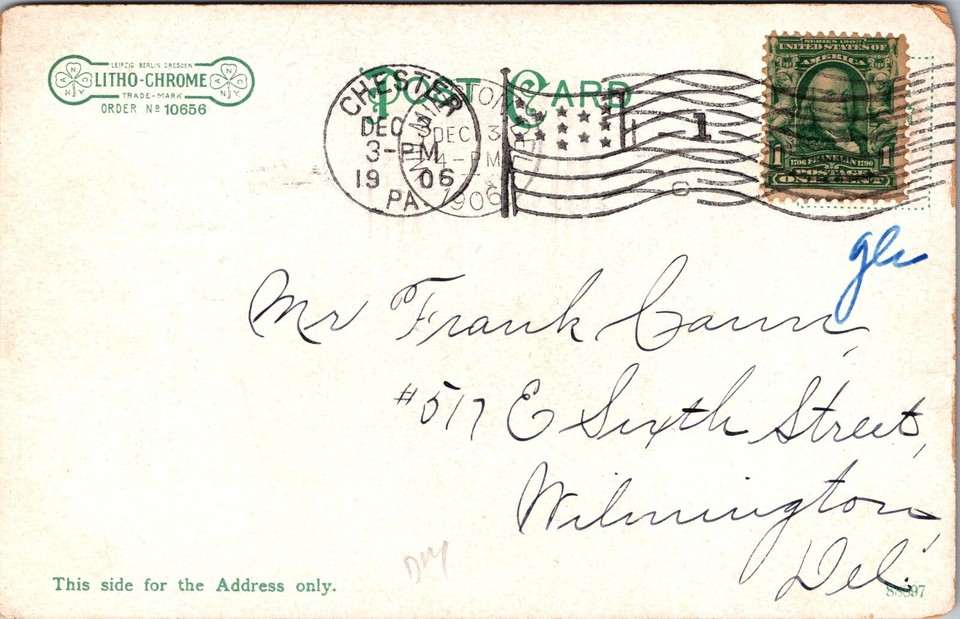 LEIPZIG BERLIN DRESDEN
LITHO-CHROME
TRADE-MARK
ORDER Nº 10656
POST CARD
CHESTER
DEC 3
3-PM
1906
PA.
DEC 3
4-PM
1906
1
C
SERIES 1902
UNITED STATES OF
AMERICA
1 1
1706 FRANKLIN 1790
POSTAGE
ONE CENT
Mr Frank
#517 E Sixth Street,
Wilmington,
Del.
This side for the Address only.